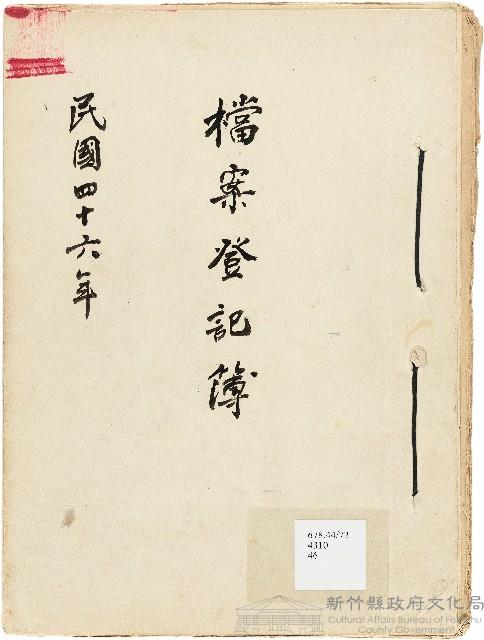 檔案登記簿
民國四十六年
678.44/72
4310
46
新竹縣政府文化局
Cultural Affairs Bureau of Hsinchu
County Government